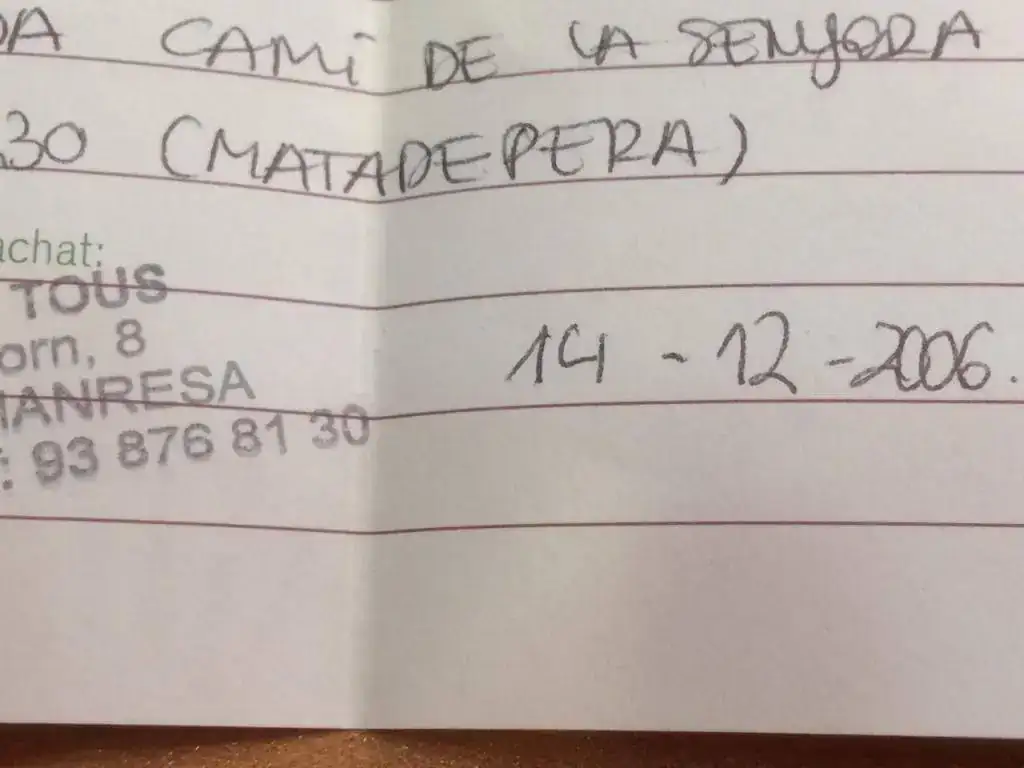 DA CAMÍ DE LA SENYORA
30 (MATADEPERA)
achat:
TOUS
orn, 8
MANRESA
: 93 876 81 30
14 - 12 - 2006.